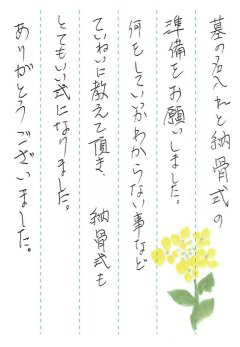 墓の名入れと納骨式の
準備をお願いしました。
何をしていいかわからない事など
ていねいに教えて頂き、 納骨式も
とてもいい式になりました。
ありがとうございました。